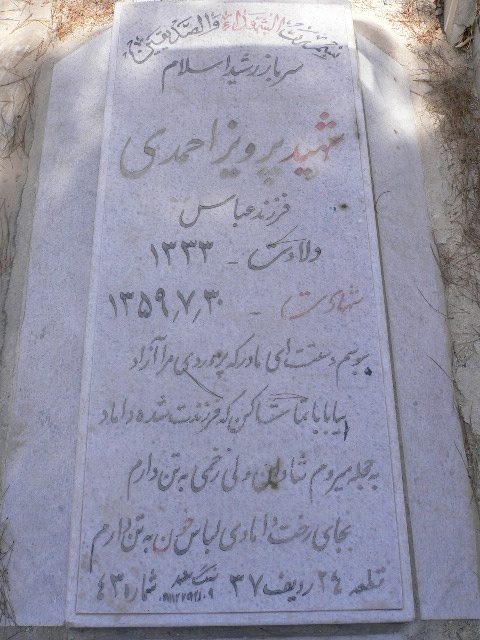 بسم رب الشهداء والصدیقین
سرباز رشید اسلام
شهید پرویز احمدی
فرزند عباس
ولادت - ۱۳۳۳
شهادت - ۱۳۵۹٫۷٫۳۰
ببوسم دستت ای مادر که پروردی مرا آزاد
بیا بابا تماشا کن که فرزندت شده داماد
به حجله میروم شادان ولی زخمی به تن دارم
بجای رخت دامادی لباس خون به تن دارم
قطعه ۲۴ ردیف ۳۷ شماره ۴۳